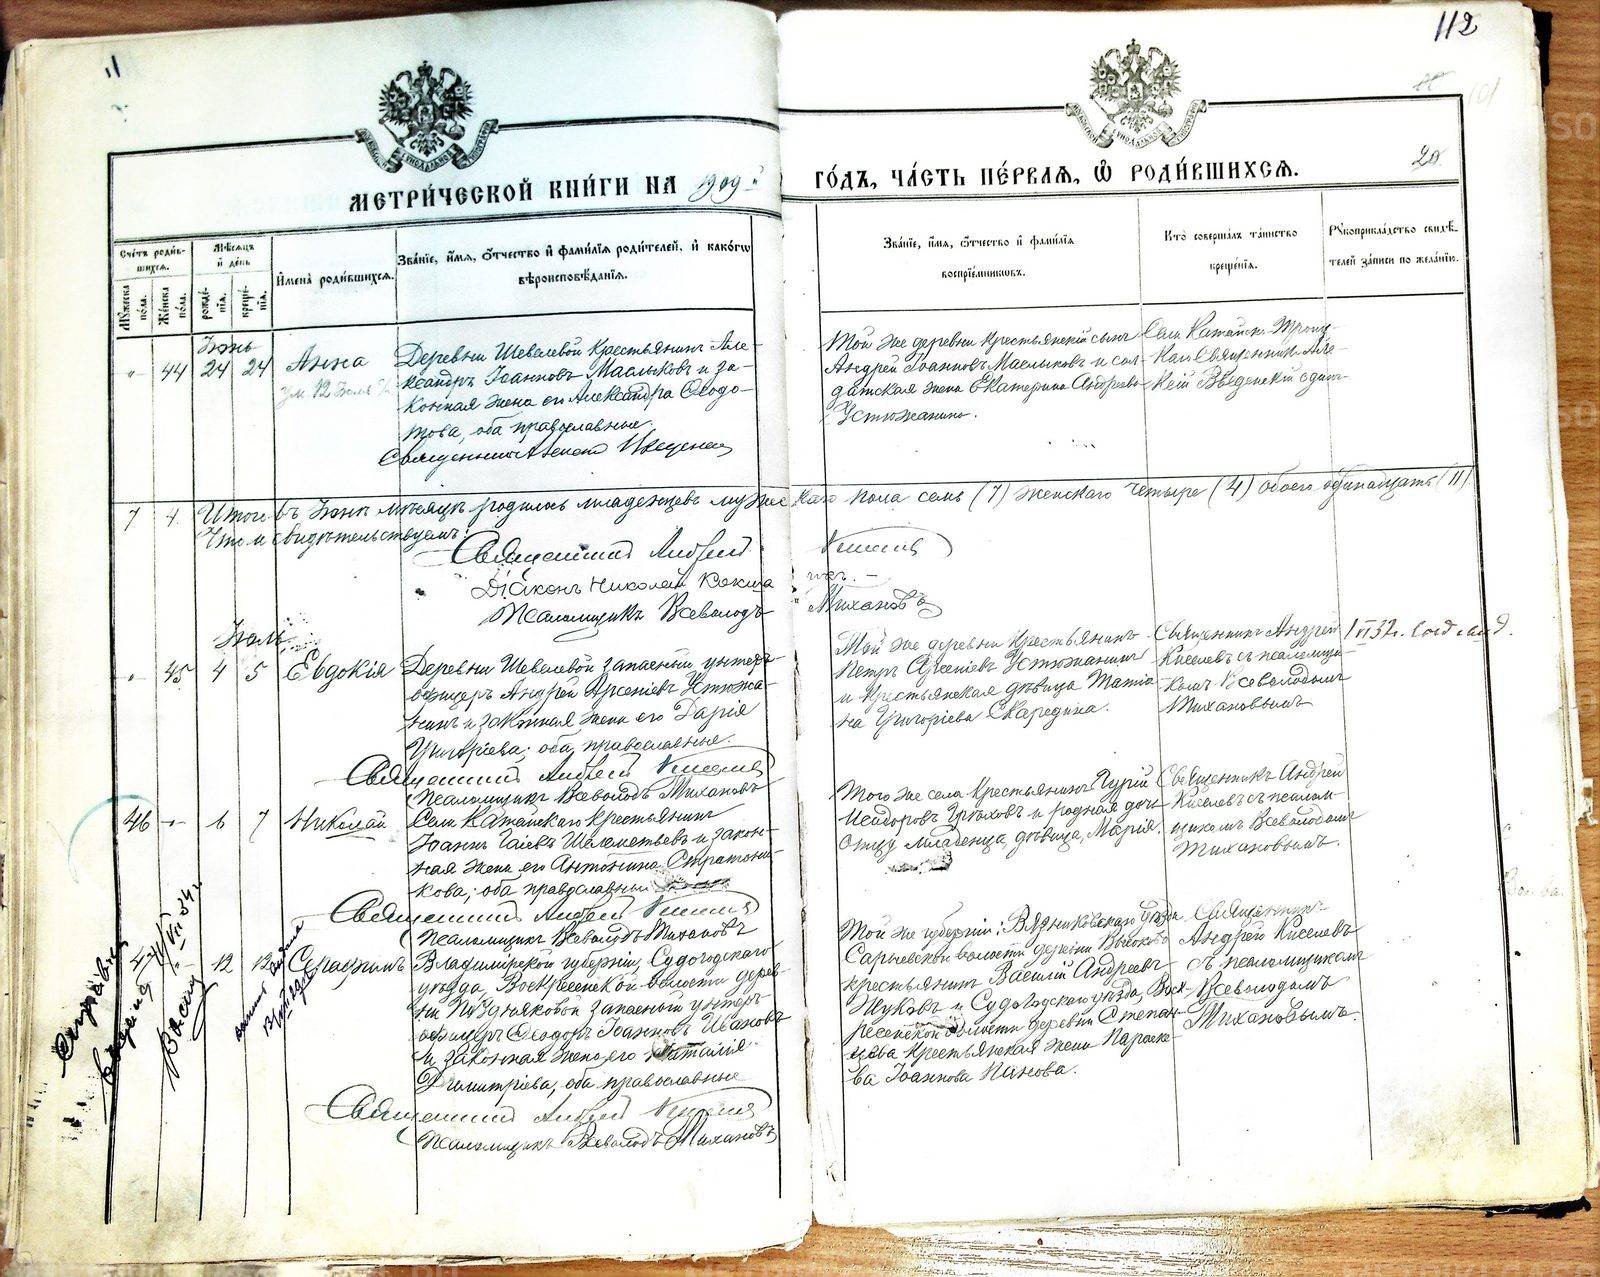 112
20
МЕТРИ́ЧЕСКОЙ КНИ́ГИ НА 1909 й
ГО́ДЪ, ЧА́СТЬ ПЕ́РВАЯ, Ѿ РОДИ́ВШИХСЯ.
Сче́тъ роди́вшихся.
Мꙋ́жеска по́ла.
Же́нска по́ла.
Мѣ́сяцъ и́ де́нь
рожде́нія.
креще́нія.
И҆мена̀ роди́вшихся.
Зва́ніе, и҆́мя, ѻ҆́тчество и҆ фами́лія роди́телей, и҆ како́гѡ
вѣроисповѣ́данія.
Зва́ніе, и҆́мя, ѻ҆́тчество и҆ фами́лія
воспрїе́мниковъ.
Кто̀ соверша́лъ та́инство
креще́нія.
Рꙋкоприкла́дство свидѣ́-
телей за́писи по жела́нію.
Іюнь
44 24 24 Анна
Деревни Шевелевой крестьянинъ Але-
ксандръ Іоанновъ Маслыковъ и за-
конная жена его Александра Ѳеодо-
това, оба православные.
Той же деревни крестьянскій сынъ
Андрей Іоанновъ Маслыковъ и сол-
датская жена Екатерина Андреева
Устюжанина.
Села Катайск. Троиц-
Кай Священникъ Але-
ксій Введенскій
7 4 Итого въ Іюнѣ мѣсяцѣ родилось младенцевъ мужескаго пола семь (7) женскаго четыре (4) обоего одинадцать (11)
Что и свидѣтельствуемъ:
Священникъ Андрей Киселевъ
Діаконъ Николай
Псаломщикъ Всеволодъ Тихановъ
Іюль
45 4 5 Евдокія
Деревни Шевелевой запасный унтеръ-
офицеръ Андрей Арсеніевъ Устюжа-
нинъ и законная жена его Дарія
Григоріева; оба православные.
Священникъ Андрей Киселевъ
Псаломщикъ Всеволодъ Тихановъ
Той же деревни крестьянинъ
Петръ Арсеніевъ Устюжанинъ
и крестьянская дѣвица Татіа-
на Григоріева Скаредина.
Священникъ Андрей
Киселевъ съ псаломщи-
комъ Всеволодомъ
Тихановымъ
46 6 7 Николай
Села Катайскаго крестьянинъ
Іоаннъ Гаіевъ Шелементьевъ и закон-
ная жена его Антонина Стратони-
кова; оба православные
Священникъ Андрей Киселевъ
Псаломщикъ Всеволодъ Тихановъ
Того же села крестьянинъ Гурій
Исидоровъ Грюховъ и родная дочь
отцу младенца, дѣвица, Марія.
Священникъ Андрей
Киселевъ съ псалом-
щикомъ Всеволодомъ
Тихановымъ.
12 12 Серафимъ
Владимірской губерніи, Судогодскаго
уѣзда, Воскресенской волости дерев-
ни Поздняковой запасный унтеръ-
офицеръ Ѳеодоръ Іоанновъ Ивановъ
и законная жена его Наталія
Димитріева, оба православные
Священникъ Андрей Киселевъ
Псаломщикъ Всеволодъ Тихановъ
Той же губерніи: Вязниковскаго уѣзда
Сарыевской волости деревни Высоково
крестьянинъ Василій Андреевъ
Жуковъ и Судогодскаго уѣзда, Воск-
ресенской волости деревни Степан-
цева крестьянская жена Параске-
ва Іоаннова Панова.
Священникъ
Андрей Киселевъ
съ псаломщикомъ
Всеволодомъ
Тихановымъ.